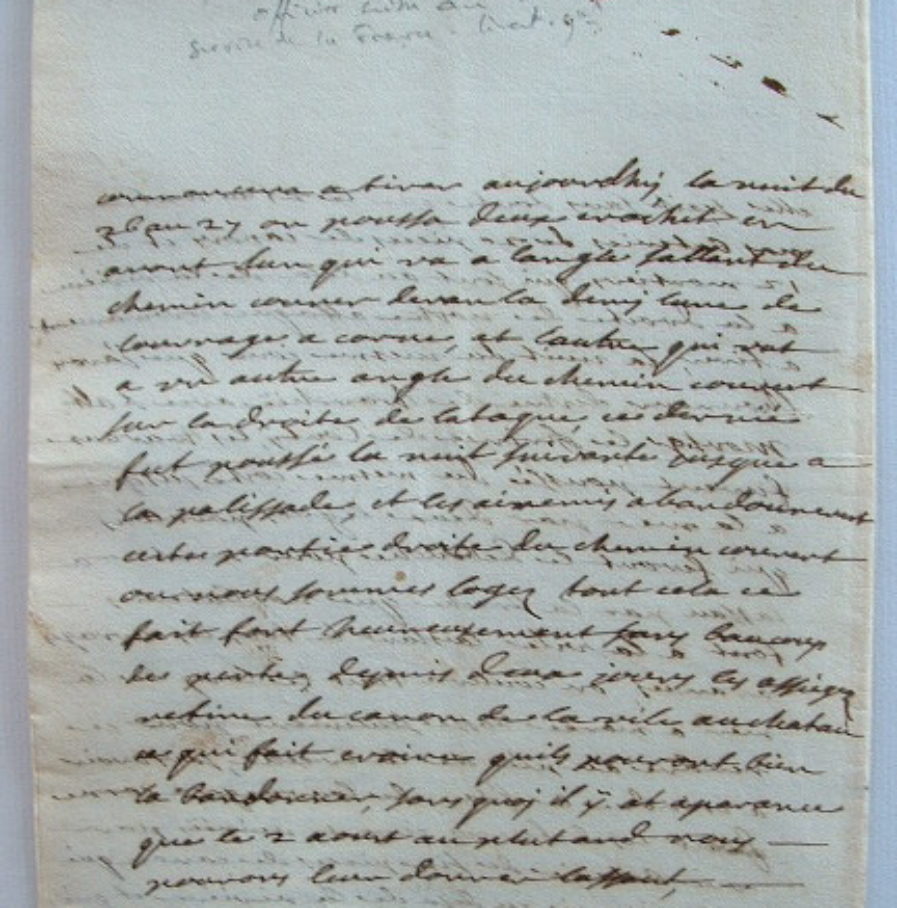 officier suisse au
service de la France. lieut. gal
commancera a tirer aujourdhuy, la nuit du
26 au 27 on poussa deux crochet en
avant lun qui va a langle sallent du
chemin couver devan la demy lune de
louvrage a corne, et lautre qui vat
a un autre angle du chemin couvert
sur la droite de lataque, ce dernié
fut poussé la nuit suivante jusque a
la palissade, et les ainemis abandonnerent
cette partie droite du chemin couvert
ou nous sommes logez tout cela ce
fait fort heureusement sans baucoup
de perte, depuis deux jours les assiegez
retire du canon de la vile au chatau
ce qui fait croire quils pouront bien
la bandonner, sans quoy il y at aparance
que le 2 aoust au plutard nous
pourons leur donner lassaut,